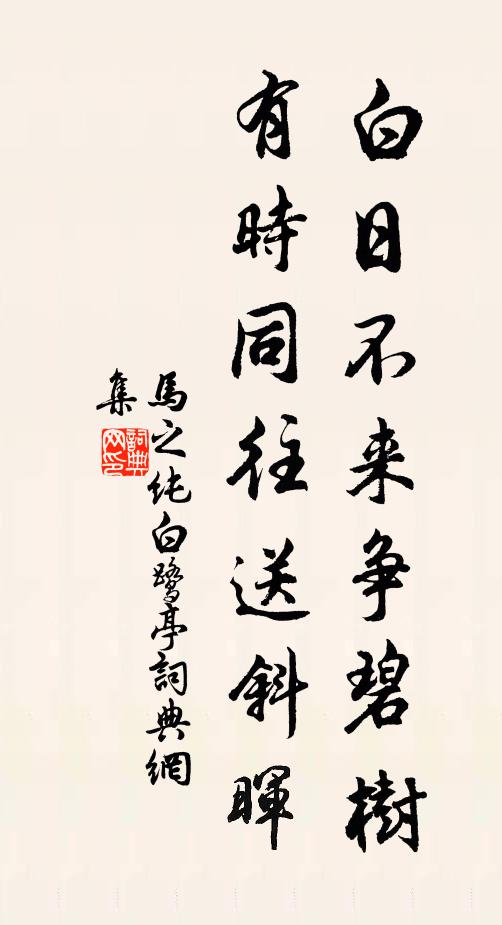 白日不来争碧樹
有時同往送斜暉
馬之純白鹭亭詞典網
集
詞典网印